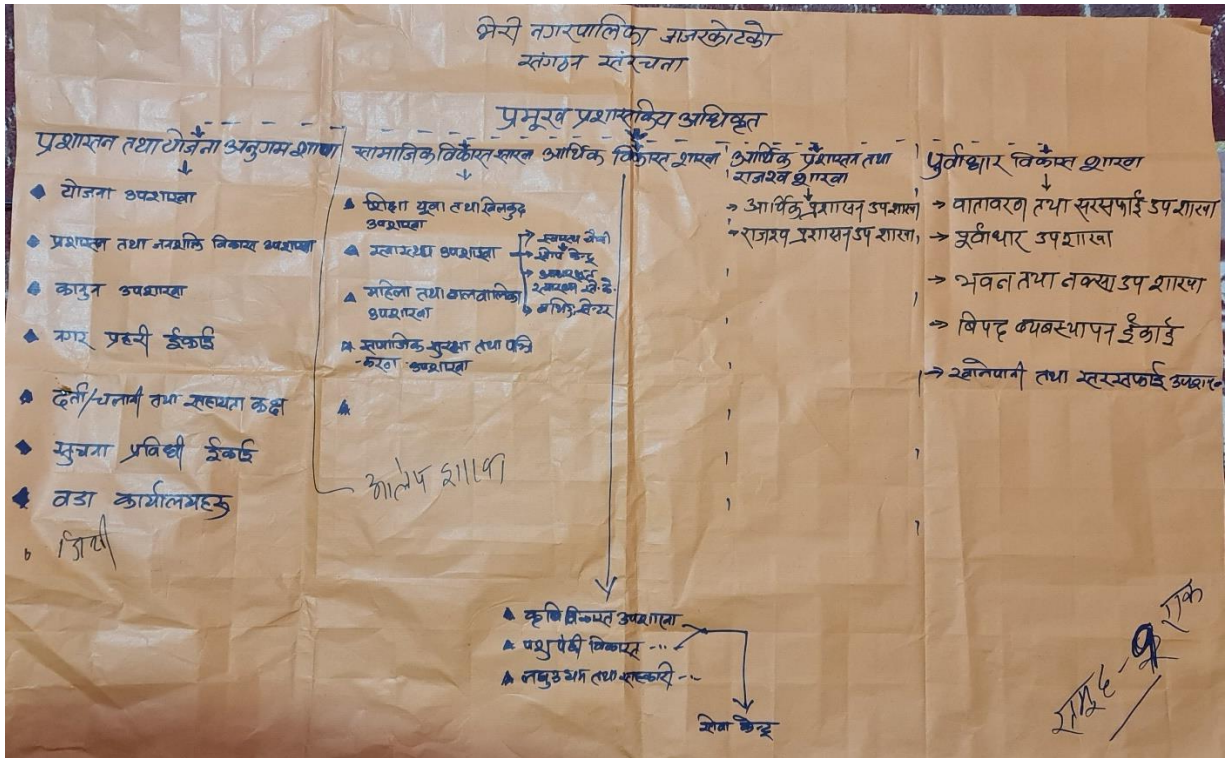 भेरी नगरपालिका जाजरकोटको
संगठन संरचना
प्रमुख प्रशासकिय अधिकृत
प्रशासन तथा योजना अनुगमन शाखा
♦ योजना उपशाखा
♦ प्रशासन तथा जनशक्ति विकास उपशाखा
♦ कानुन उपशाखा
♦ नगर प्रहरी ईकाई
♦ दर्ता/चलानी तथा सहायता कक्ष
♦ सुचना प्रविधी ईकाई
♦ वडा कार्यालयहरु
सामाजिक विकास शाखा
▲ शिक्षा युवा तथा खेलकुद
उपशाखा
▲ स्वास्थ्य उपशाखा
▲ महिला तथा बालबालिका
उपशाखा
▲ सामाजिक सुरक्षा तथा पञ्जि
-करण उपशाखा
आलेप शाखा
आर्थिक विकास शाखा
▲ कृषि विकास उपशाखा
▲ पशुपंछी विकास -"-
▲ लघुउद्यम तथा सहकारी -"-
सेवा केन्द्र
आर्थिक प्रशासन तथा
राजश्व शाखा
→ आर्थिक प्रशासन उपशाखा
→ राजश्व प्रशासन उपशाखा
पुर्वाधार विकास शाखा
→ वातावरण तथा सरसफाई उपशाखा
→ पुर्वाधार उपशाखा
→ भवन तथा नक्सा उपशाखा
→ बिपद ब्यबस्थापन ईकाई
→ खानेपानी तथा सरसफाई उपशाखा
समुह - १ एक